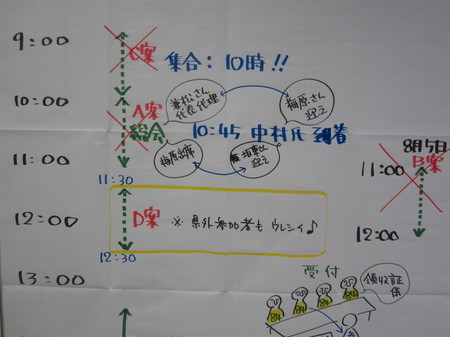 9:00
C案
集合:10時!!
10:00
A案
兼松さん
代表代理
梅原さん
迎え
総会
10:45 中村氏 到着
梅原出席
迎え
11:00
11:30
8月5日
B案
11:00
12:00
12:00
D案
※ 県外参加者も ウレシイ♪
12:30
13:00
受付
領収証
係